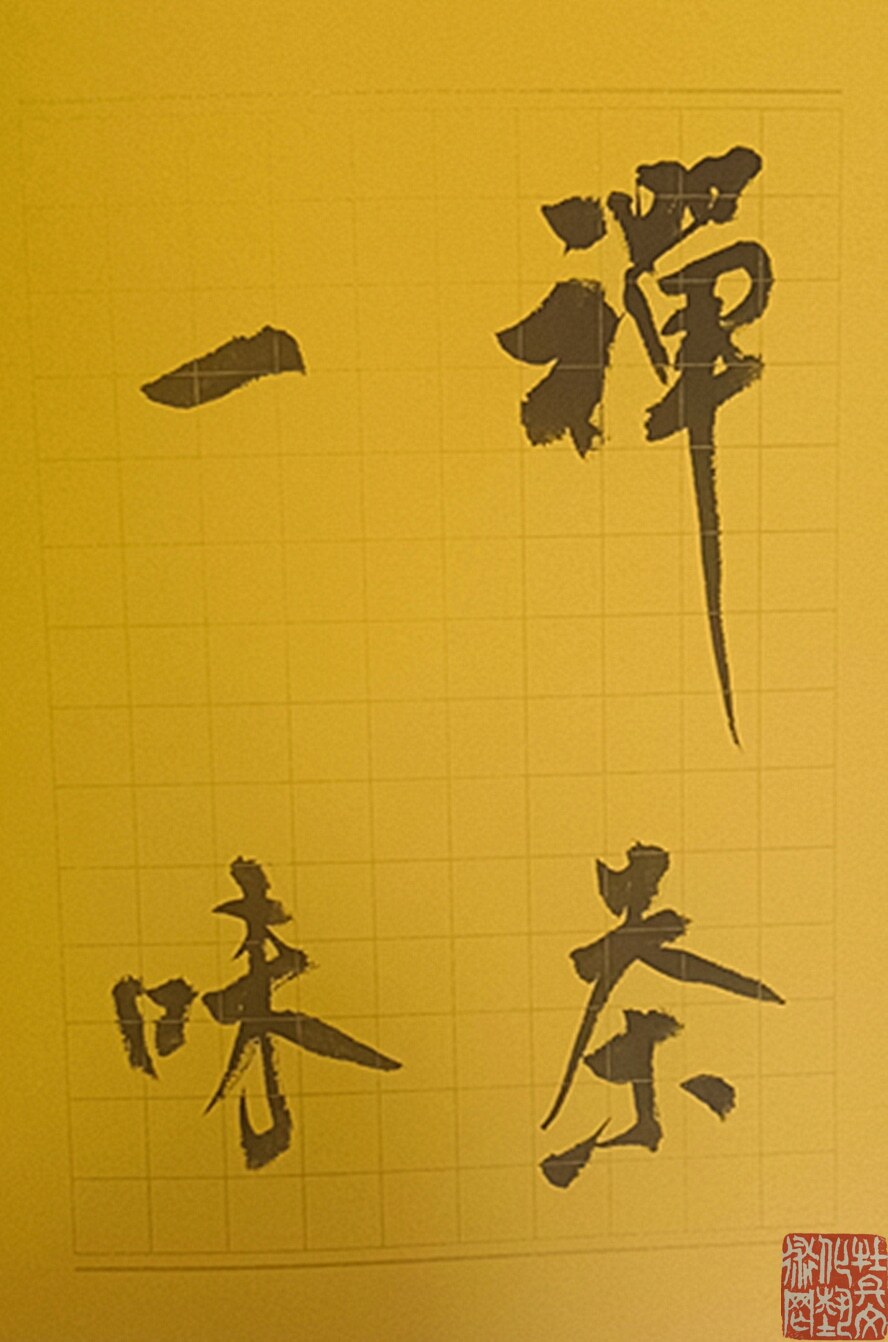 禪茶
一味